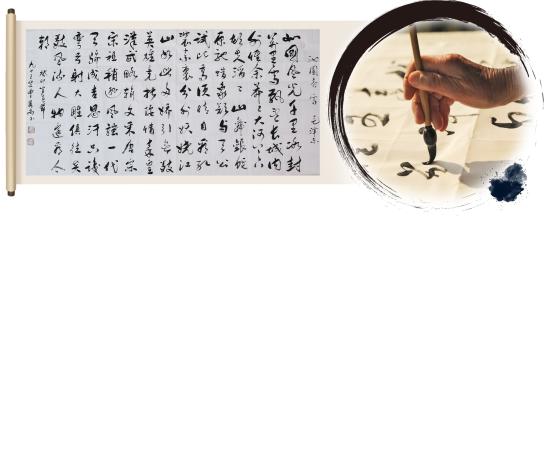 沁園春 雪 毛澤東
北國風光千里冰封
萬里雪飄望長城內
外惟余莽莽大河上下
頓失滔滔山舞銀蛇
原馳蠟象欲與天公
試比高須晴日看紅
裝素裹分外妖嬈江
山如此多嬌引無數
英雄競折腰惜秦皇
漢武略輸文采唐宗
宋祖稍遜風騷一代
天驕成吉思汗只識
彎弓射大雕俱往矣
數風流人物還看今
朝